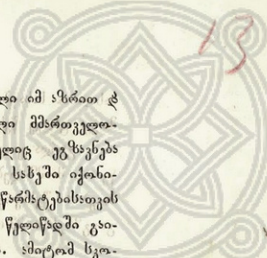 13
ლი იმ აზრით ჵ
ლი მმართველო-
ელიც ეგზავნება
სასეში იქონი-
წარმატებისათვის
წელიწადში გაი-
ამიტომ სკო-